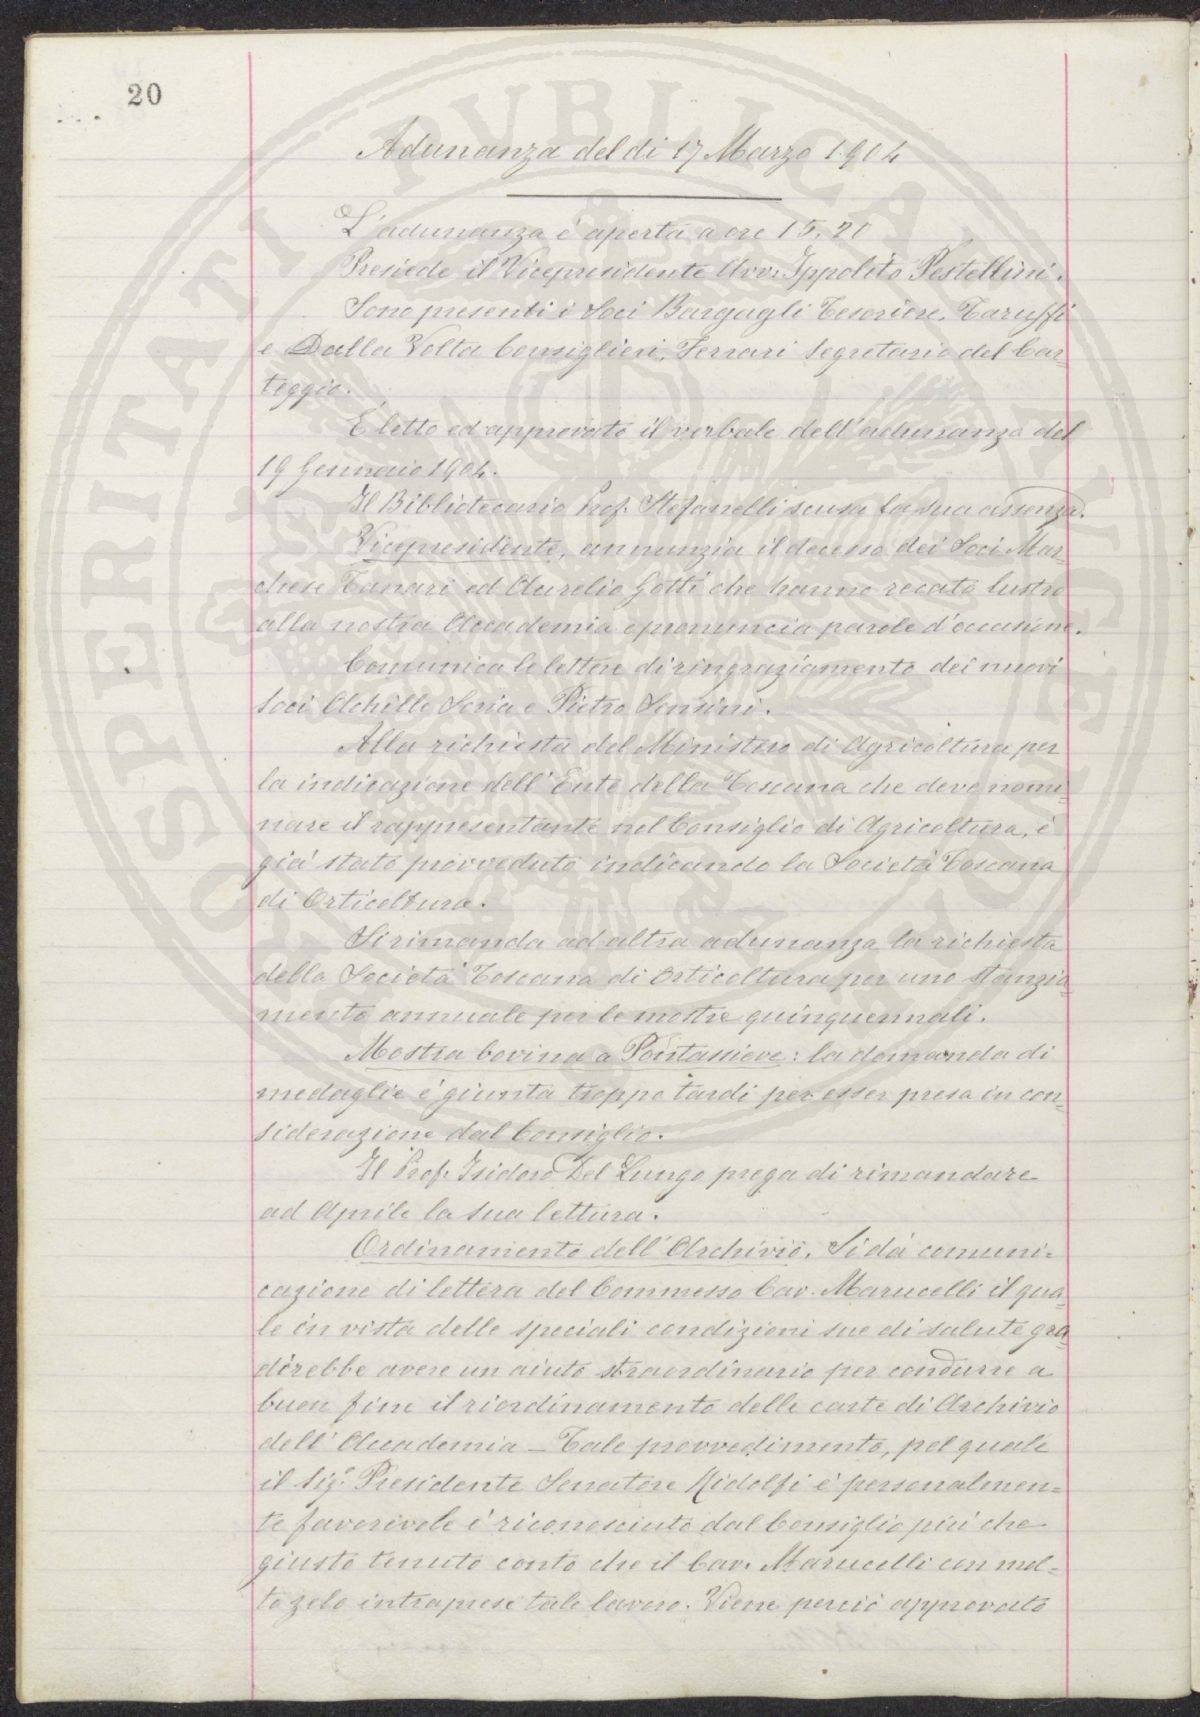 20
Adunanza del dì 17 Marzo 1904
L'adunanza è aperta a ore 15,20
Presiede il Vicepresidente Avv. Ippolito Pestellini.
Sono presenti i Soci Bargagli Tesoriere, Taruffi
e Dalla Volta Consiglieri, Ferrari Segretario del Car=
teggio.
È letto ed approvato il verbale dell'adunanza del
19 Gennaio 1904.
Il Bibliotecario Prof. Stefanelli scusa la sua assenza.
Vicepresidente, annunzia il decesso dei Soci Mar=
chese Tanari ed Aurelio Gotti che hanno recato lustro
alla nostra Accademia e pronuncia parole d'occasione.
Comunica le lettere di ringraziamento dei nuovi
Soci Achille Soria e Pietro Sensini.
Alla richiesta del Ministero di Agricoltura per
la indicazione dell'Ente della Toscana che deve nomi=
nare il rappresentante nel Consiglio di Agricoltura, è
già stato provveduto indicando la Società Toscana
di Orticoltura.
Si rimanda ad altra adunanza la richiesta
della Società Toscana di Orticoltura per uno stanzia=
mento annuale per le mostre quinquennali.
Mostra bovina a Pontassieve: la domanda di
medaglie è giunta troppo tardi per esser presa in con=
siderazione dal Consiglio.
Il Prof. Isidoro Del Lungo prega di rimandare
ad Aprile la sua lettura.
Ordinamento dell'Archivio. Si dà comuni=
cazione di lettera del Commesso Cav. Marucelli il qua=
le in vista delle speciali condizioni sue di salute gra=
direbbe avere un aiuto straordinario per condurre a
buon fine il riordinamento delle carte di Archivio
dell'Accademia – Tale provvedimento, pel quale
il Sig. Presidente Senatore Ridolfi è personalmen=
te favorevole è riconosciuto dal Consiglio più che
giusto tenuto conto che il Cav. Marucelli con mol=
to zelo intraprese tale lavoro. Viene perciò approvato
SPERITATI PUBLICAE